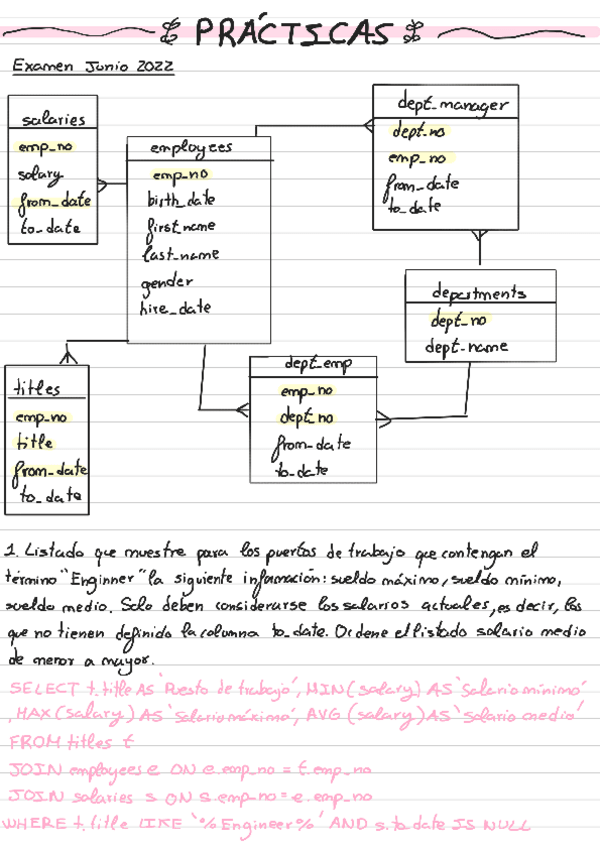 PRÁCTICAS
Examen Junio 2022
salaries
emp_no
salary
from_date
to_date
employees
emp_no
birth_date
first_name
last_name
gender
hire_date
dept_manager
dept_no
emp_no
from_date
to_date
departments
dept_no
dept_name
titles
emp_no
title
from_date
to_date
dept_emp
emp_no
dept_no
from_date
to_date
1. Listado que muestre para los puertos de trabajo que contengan el
término "Enginner" la siguiente información: sueldo máximo, sueldo mínimo,
sueldo medio. Solo deben considerarse los salarios actuales, es decir, los
que no tienen definido la columna to_date. Ordene el listado salario medio
de menor a mayor.
SELECT t.title AS 'Puesto de trabajo', MIN(salary) AS 'Salario mínimo'
, MAX(salary) AS 'Salario máximo', AVG (salary) AS 'salario medio'
FROM titles t
JOIN employees e ON e.emp_no = t.emp_no
JOIN salaries s ON s.emp_no = e.emp_no
WHERE t.title LIKE '%Engineer%' AND s.to_date IS NULL